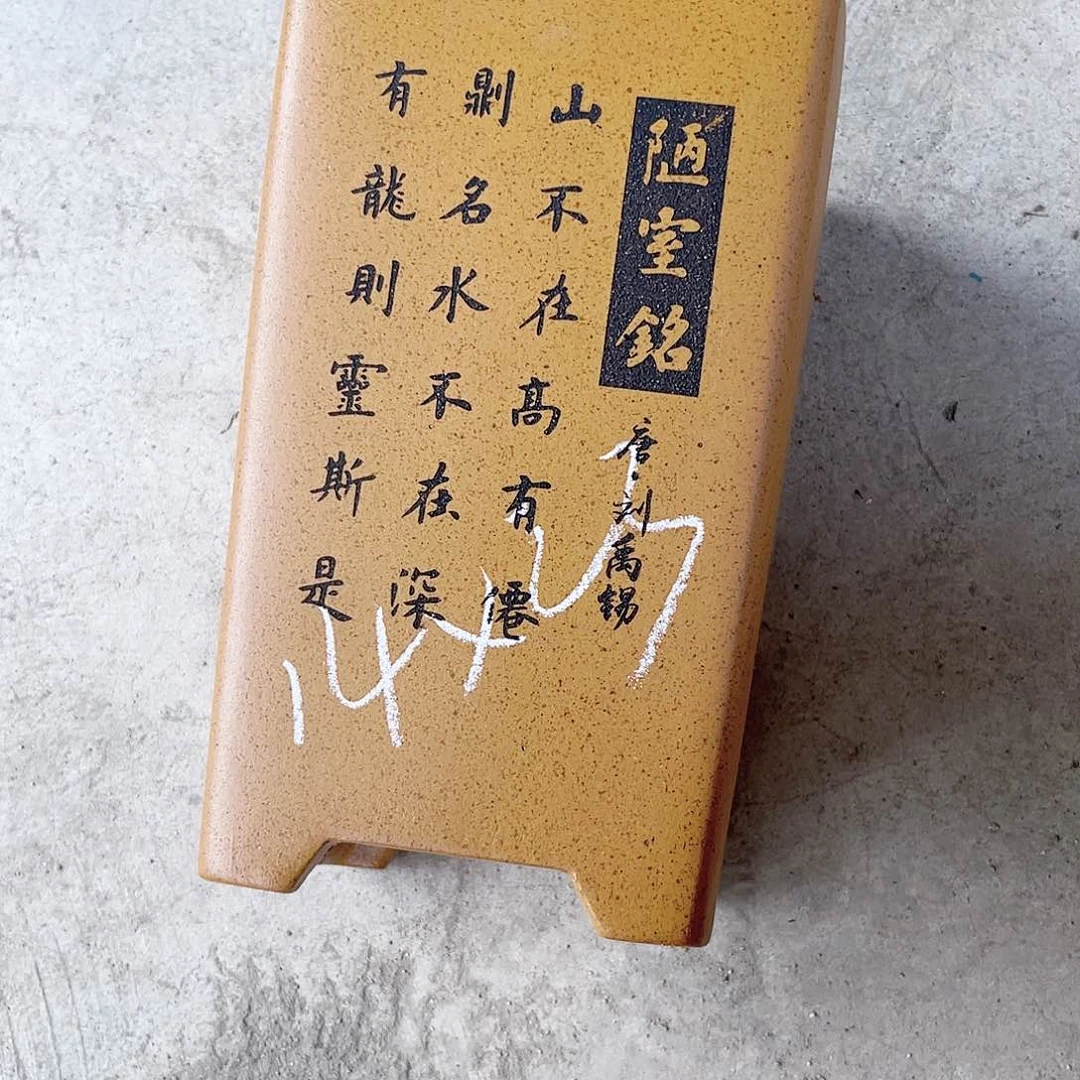 陋室銘
唐·刘禹錫
山不在高有僊
𠟭名水不在深
有龍則靈斯是